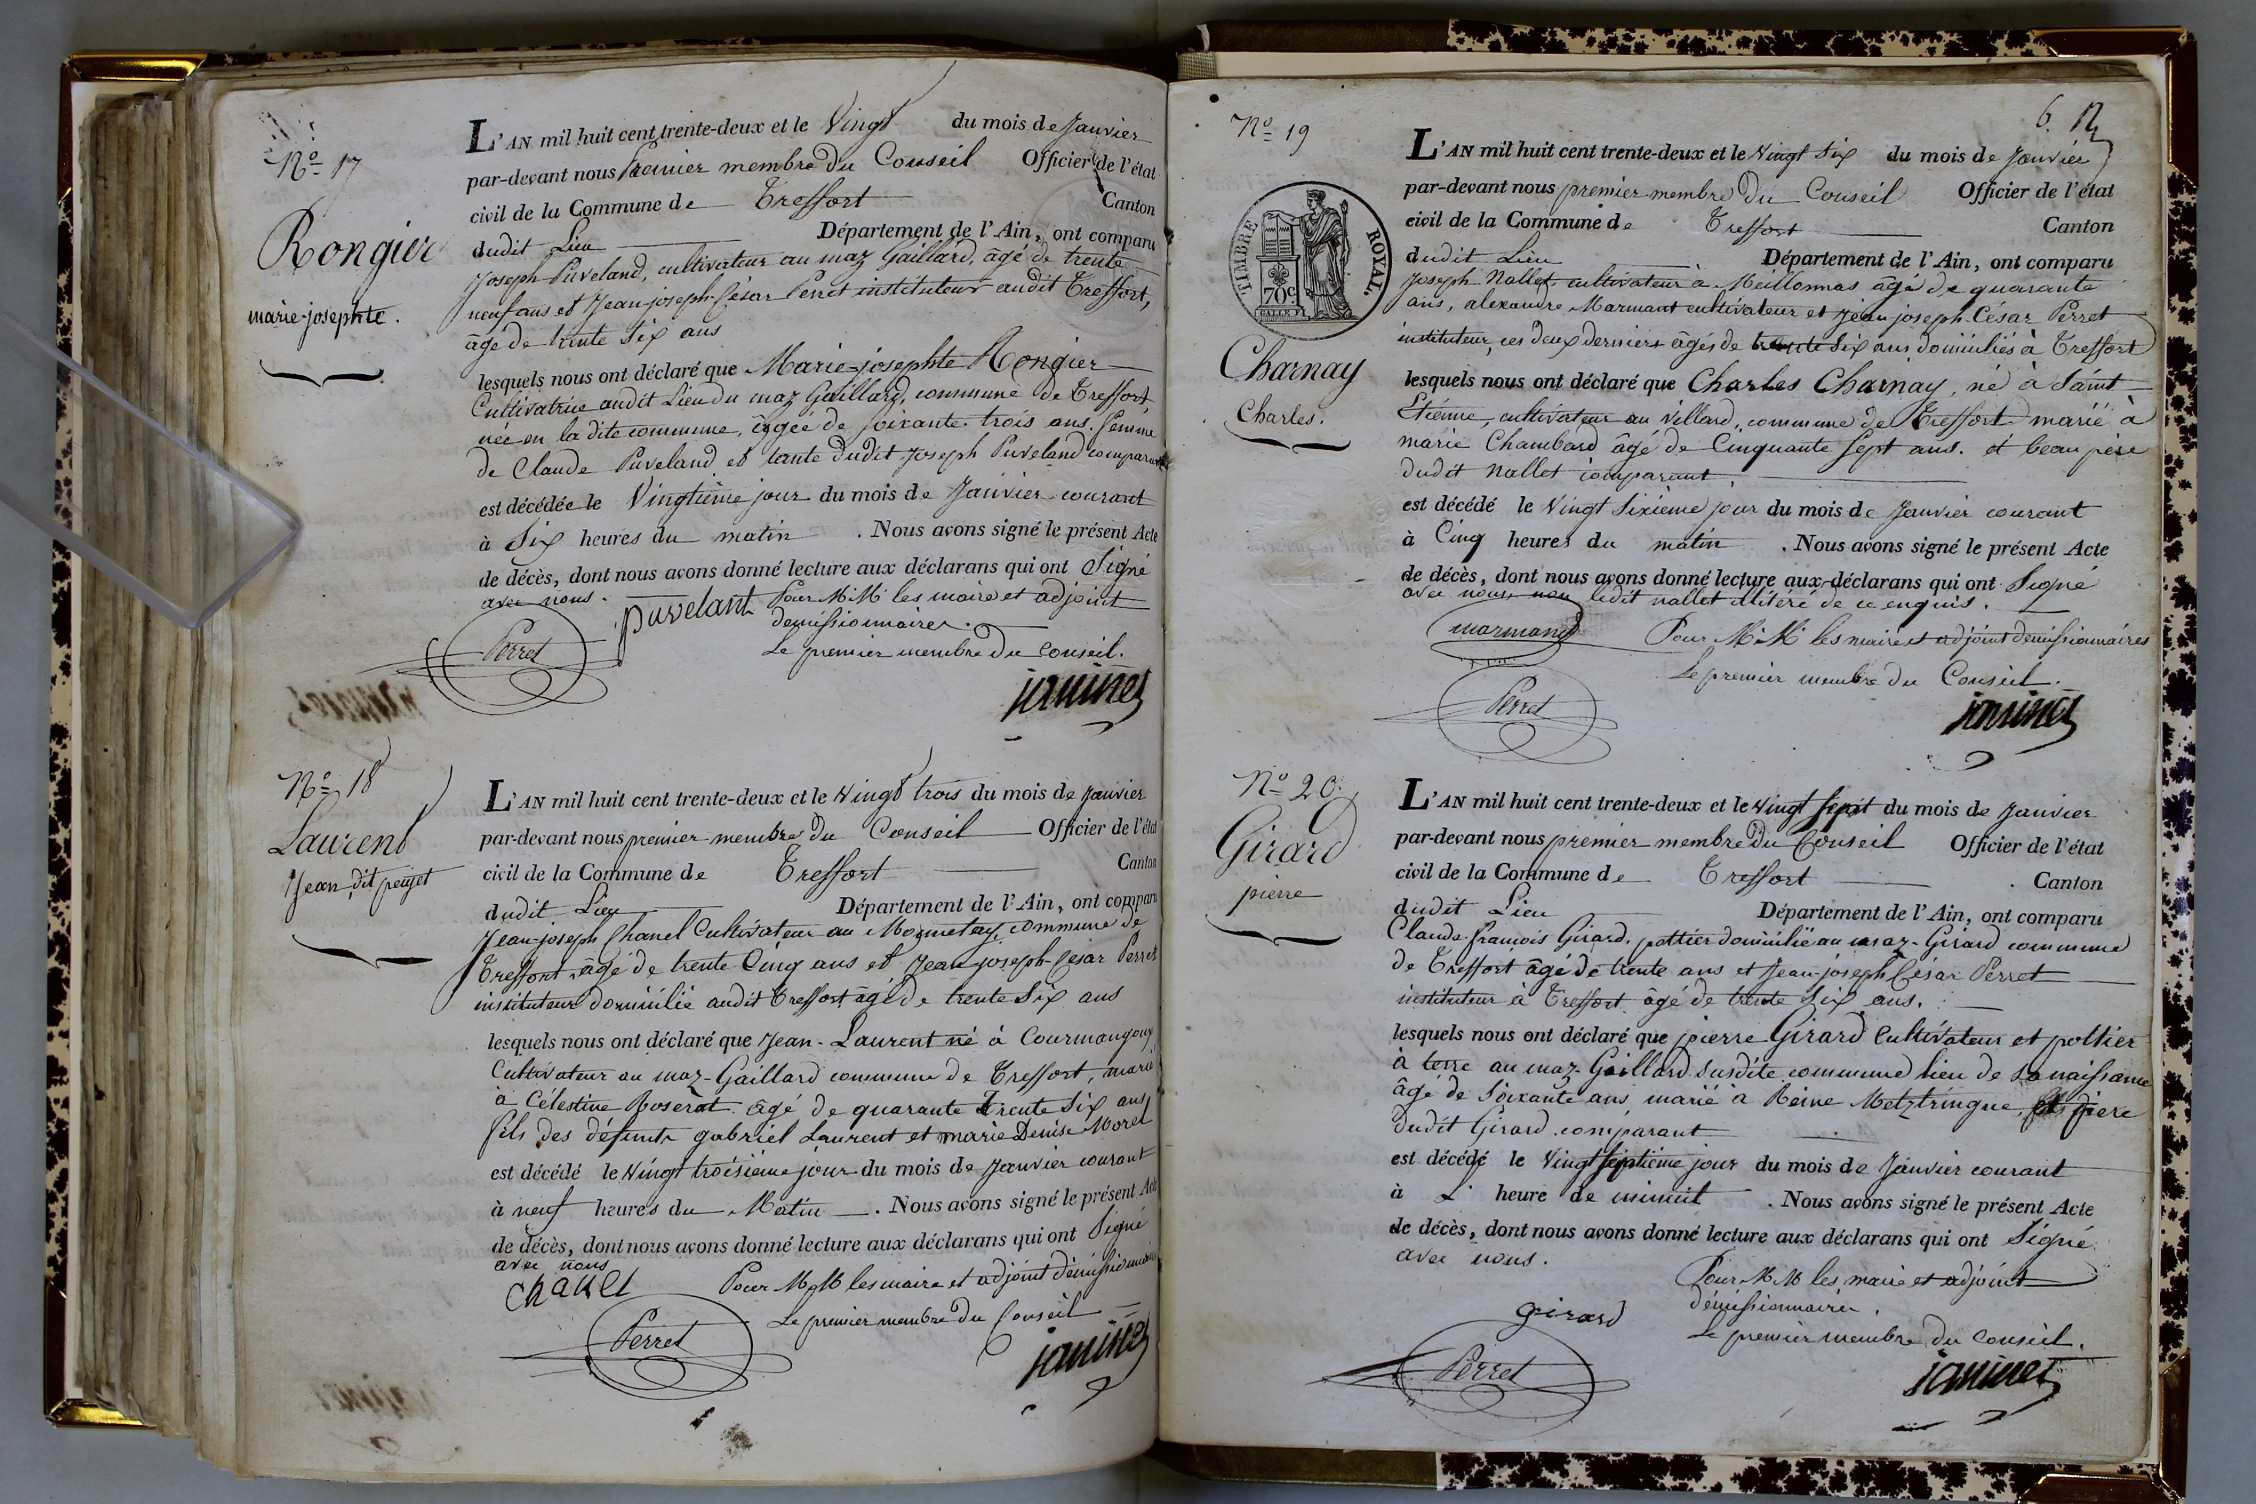 No 17
Rongier
marie-josephte.
L'AN mil huit cent trente-deux et le Vingt du mois de Janvier
par-devant nous premier membre du Conseil Officier de l'état
civil de la Commune de Treffort Canton
dudit Lieu Département de l'Ain, ont comparu
Joseph Puveland, cultivateur au maz Gaillard, âgé de trente
neuf ans et Jean-joseph-César Perret instituteur audit Treffort,
âgé de trente six ans
lesquels nous ont déclaré que Marie-josephte Rongier
Cultivatrice audit Lieu du maz Gaillard, commune de Treffort
née en la dite commune, âgée de soixante trois ans. femme
de Claude Puveland et tante dudit Joseph Puveland comparant
est décédée le Vingtième jour du mois de Janvier courant
à Six heures du matin . Nous avons signé le présent Acte
de décès, dont nous avons donné lecture aux déclarans qui ont Signé
avec nous. puvelant Pour MM les maire et adjoint
démissionnaires.
Perret Le premier membre du Conseil.
janinet
No 18
Laurent
Jean dit
L'AN mil huit cent trente-deux et le Vingt trois du mois de Janvier
par-devant nous premier membre du Conseil Officier de l'état
civil de la Commune de Treffort Canton
dudit Lieu Département de l'Ain, ont comparu
Jean-joseph Chanel Cultivateur au commune de
Treffort, âgé de trente Cinq ans et Jean-joseph-César Perret
instituteur domicilié audit Treffort âgé de trente Six ans
lesquels nous ont déclaré que Jean-Laurent né à Courmangoux
Cultivateur au maz-Gaillard commune de Treffort, marié
à Célestine Roserat âgé de quarante trente Six ans
fils des défunts gabriel Laurent et marie Denise Morel
est décédé le Vingt troisième jour du mois de Janvier courant
à neuf heures du Matin . Nous avons signé le présent Acte
de décès, dont nous avons donné lecture aux déclarans qui ont Signé
avec nous
chanel Pour MM les maire et adjoint démissionnaires
Le premier membre du Conseil
Perret janinet
6.
No 19
TIMBRE ROYAL.
70c
Charnay
Charles.
L'AN mil huit cent trente-deux et le Vingt Six du mois de Janvier
par-devant nous premier membre du Conseil Officier de l'état
civil de la Commune de Treffort Canton
dudit Lieu Département de l'Ain, ont comparu
Joseph Nallet cultivateur à Meillonnas âgé de quarante
ans, alexandre Marmant cultivateur et Jean joseph-César Perret
instituteur, ces deux derniers âgés de trente Six ans domiciliés à Treffort
lesquels nous ont déclaré que Charles Charnay, né à Saint
Etienne, cultivateur au Villard, commune de Treffort marié à
marie Chambard âgé de Cinquante Sept ans. et beau père
dudit nallet comparant
est décédé le Vingt Sixième jour du mois de Janvier courant
à Cinq heures du matin . Nous avons signé le présent Acte
de décès, dont nous avons donné lecture aux déclarans qui ont Signé
avec nous, non ledit nallet illitéré de ce enquis.
marmand Pour MM les maire et adjoint démissionnaires
Le premier membre du Conseil.
Perret janinet
No 20.
Girard
pierre
L'AN mil huit cent trente-deux et le Vingt Sept du mois de Janvier
par-devant nous premier membre du Conseil Officier de l'état
civil de la Commune de Treffort Canton
dudit Lieu Département de l'Ain, ont comparu
Claude-françois Girard, pottier domicilié au maz-Girard commune
de Treffort âgé de trente ans et Jean-joseph César Perret
instituteur à Treffort âgé de trente Six ans.
lesquels nous ont déclaré que pierre Girard Cultivateur et pottier
à terre au maz-Gaillard susdite commune lieu de sa naissance
âgé de Soixante ans marié à Reine Metztringue, et père
dudit Girard comparant
est décédé le Vingt Septième jour du mois de Janvier courant
à L' heure de minuit . Nous avons signé le présent Acte
de décès, dont nous avons donné lecture aux déclarans qui ont Signé
avec nous.
Pour MM les maire et adjoint
démissionnaires.
girard Le premier membre du Conseil.
Perret janinet